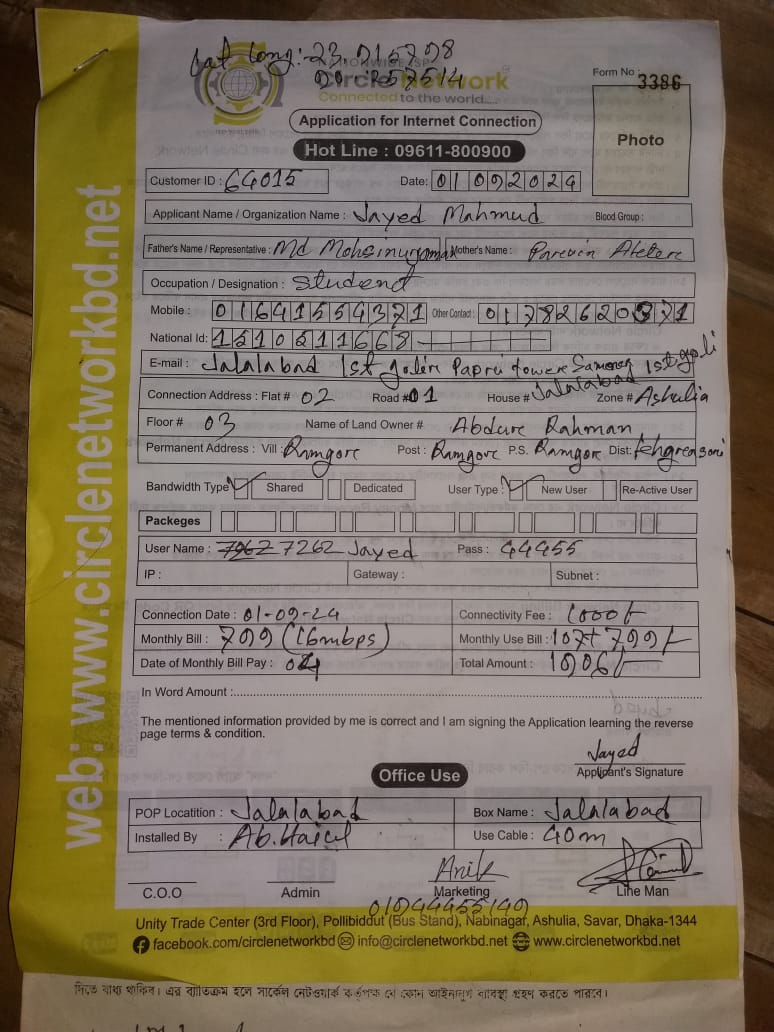 Lat Long: 23.915798
90.257514
NATIONWIDE ISP
Circle Network
Connected to the world.....
Form No : 3386
Application for Internet Connection
Photo
Hot Line : 09611-800900
Customer ID : 64015 Date: 01092024
Applicant Name / Organization Name : Jayed Mahmud Blood Group :
Father's Name / Representative : Md Mohsinurjaman Mother's Name : Parevin
Occupation / Designation : Student
Mobile : 01641554371 Other Contact :
National Id: 1510511668
E-mail : Jalalabad 1st Tower 1st goli
Connection Address : Flat # 02 Road #01 House # Jalalabad Zone # Ashulia
Floor # 03 Name of Land Owner # Abdure Rahman
Permanent Address : Vill : Ramgore Post : Ramgore P.S. Ramgor Dist:
Bandwidth Type Shared Dedicated User Type : New User Re-Active User
Packeges
User Name : 7262 Jayed Pass : 44455
IP : Gateway : Subnet :
Connection Date : 01-09-24 Connectivity Fee : 1000/-
Monthly Bill : 799 (16mbps) Monthly Use Bill : 107+799/-
Date of Monthly Bill Pay : Total Amount : 1906/-
In Word Amount :
The mentioned information provided by me is correct and I am signing the Application learning the reverse
page terms & condition.
Jayed
Applicant's Signature
Office Use
POP Locatition : Jalalabad Box Name : Jalalabad
Installed By : Use Cable : 40m
Anik
C.O.O Admin Marketing Line Man
Unity Trade Center (3rd Floor), Pollibiddut (Bus Stand), Nabinagar, Ashulia, Savar, Dhaka-1344
facebook.com/circlenetworkbd info@circlenetworkbd.net www.circlenetworkbd.net
web: www.circlenetworkbd.net
দিতে বাধ্য থাকিব। এর ব্যতিক্রম হলে সার্কেল নেটওয়ার্ক কর্তৃপক্ষ যে কোন আইনানুগ ব্যবস্থা গ্রহণ করতে পারবে।